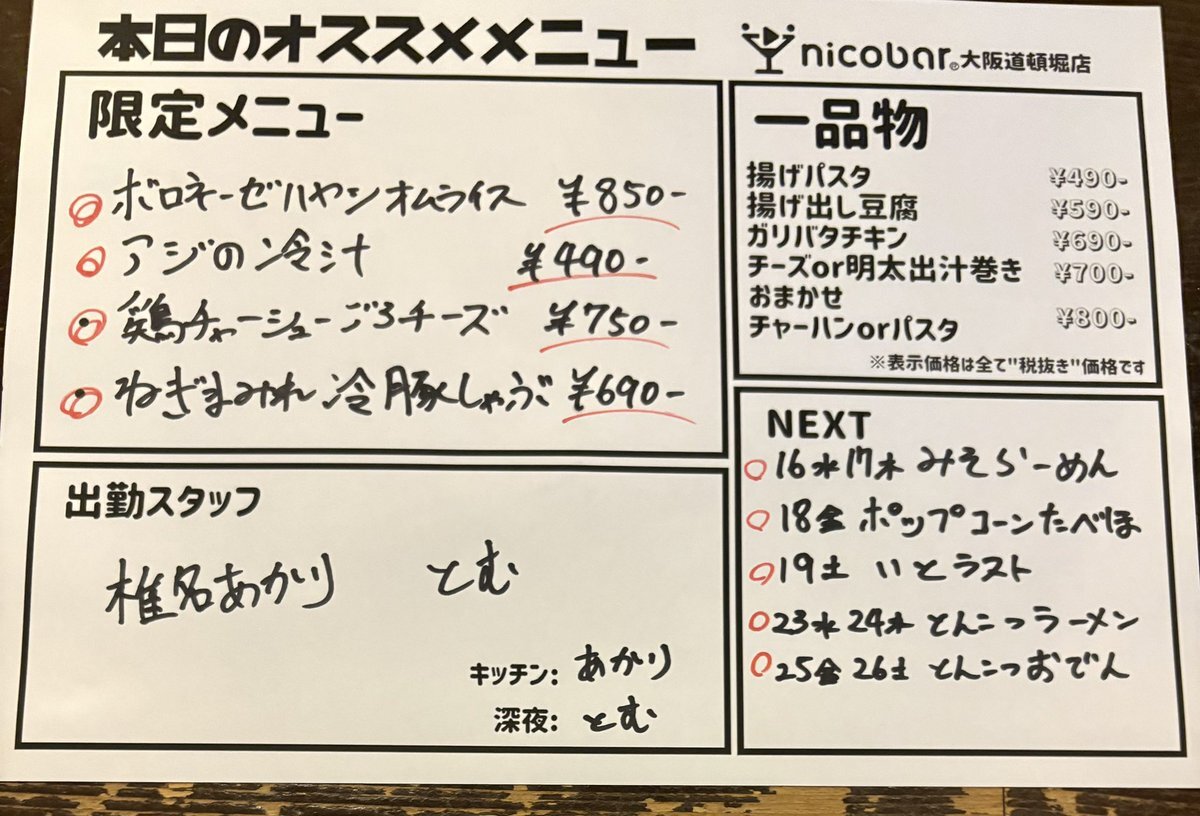 本日のオススメメニュー
nicobar® 大阪道頓堀店
限定メニュー
ボロネーゼハヤシオムライス ¥850-
アジの冷汁 ¥490-
鶏チャーシューごろチーズ ¥750-
ねぎまみれ冷豚しゃぶ ¥690-
一品物
揚げパスタ ¥490-
揚げ出し豆腐 ¥590-
ガリバタチキン ¥690-
チーズor明太出汁巻き ¥700-
おまかせ
チャーハンorパスタ ¥800-
※表示価格は全て"税抜き"価格です
出勤スタッフ
椎名あかり とむ
キッチン: あかり
深夜: とむ
NEXT
16水17木 みそらーめん
18金 ポップコーンたべほ
19土 いとラスト
23水24木 とんこつラーメン
25金26土 とんこつおでん